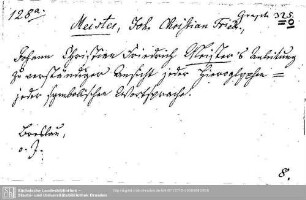 128a. Graph. 325.
Meister, Joh. Christian Fried.,
Johann Christian Friedrich Meister's Anleitung
zu verständiger Ansicht jeder Hieroglyphen=
jeder symbolischen Wortsprache.
Breslau,
o. J.
8.
Sächsische Landesbibliothek -
Staats- und Universitätsbibliothek Dresden